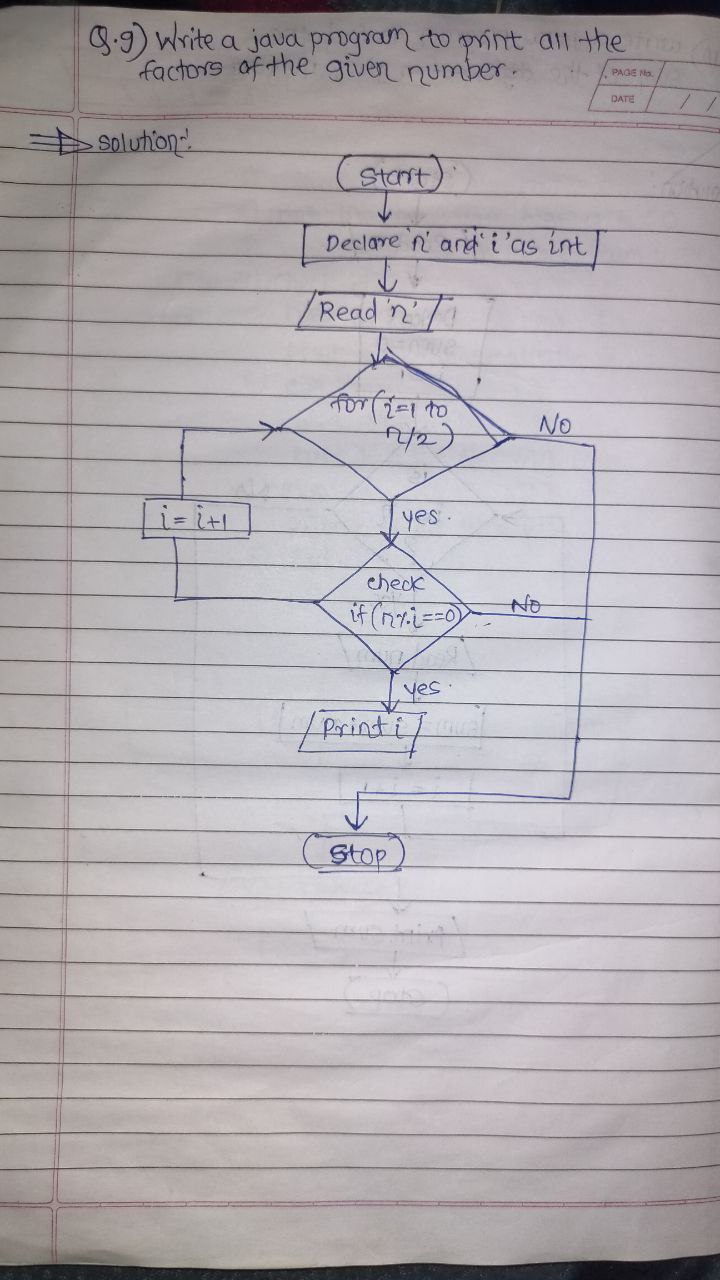 Q.9) Write a java program to print all the
factors of the given number.
PAGE No.
DATE / /
solution:
Start
Declare 'n' and 'i' as int
Read 'n'
for(i=1 to
n/2)
No
i = i+1
yes.
check
if(n%i==0)
No
yes.
Print i
Stop